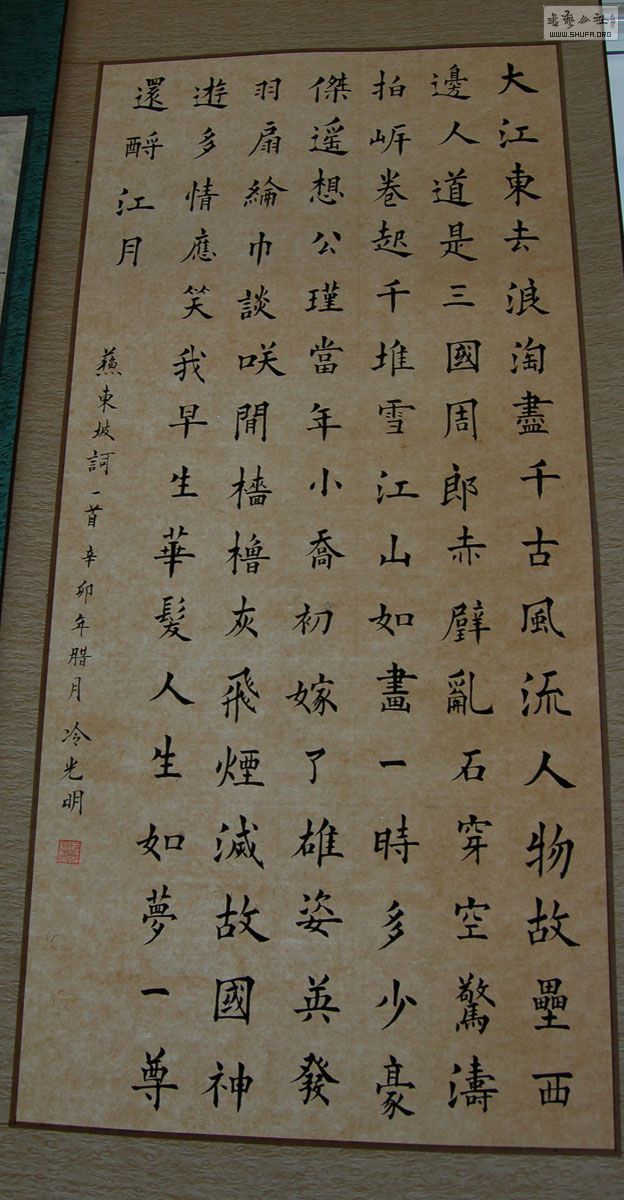 大江東去浪淘盡千古風流人物故壘西
邊人道是三國周郎赤壁亂石穿空驚濤
拍岸卷起千堆雪江山如畫一時多少豪
傑遥想公瑾當年小喬初嫁了雄姿英發
羽扇綸巾談咲間檣櫓灰飛煙滅故國神
遊多情應笑我早生華髮人生如夢一尊
還酹江月
蘇東坡詞一首辛卯年腊月冷光明
WWW.SHUFA.ORG